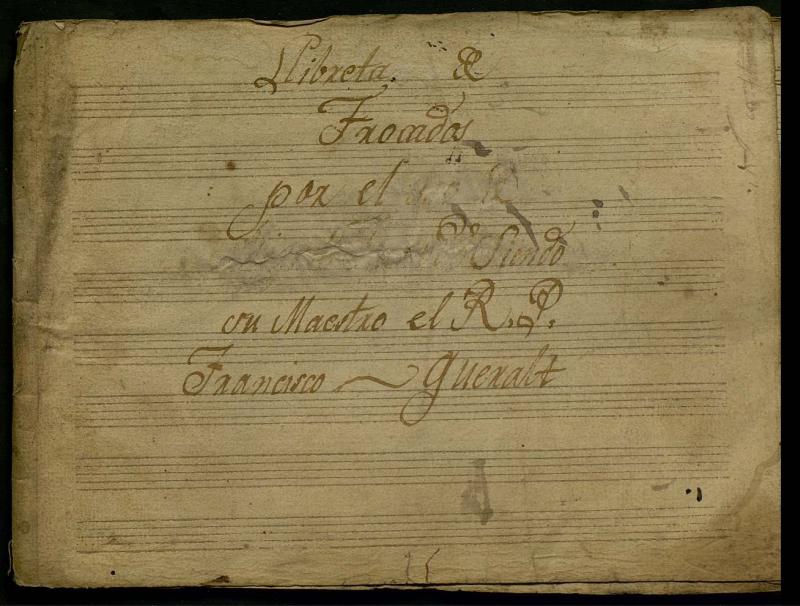 Llibreta de
Trocadas
por el
Siendo
su Maestro el R. P.
Francisco Queralt